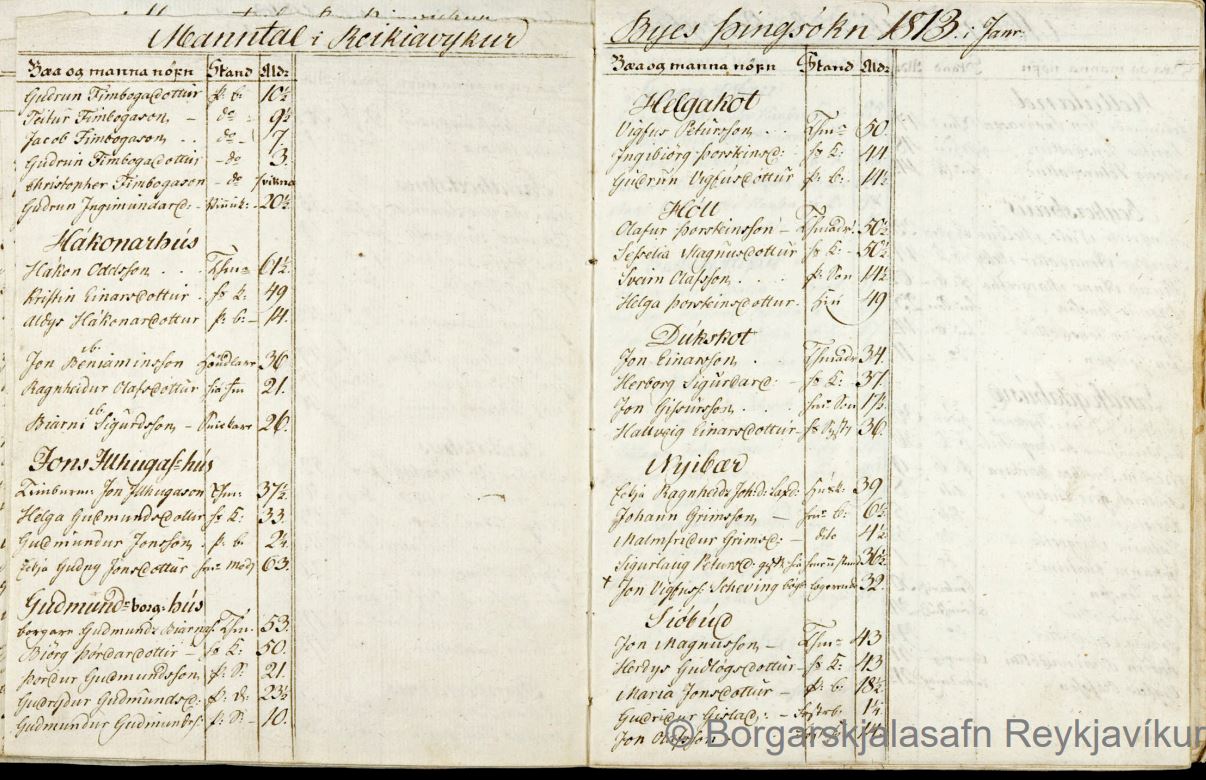 Manntal i Reikiavykur
Bæa og manna nöfn Stand Aldr
Gudrun Finbogadottur þ: b: 10½
Teitur Finbogason - do - 9½
Jacob Finbogason . . do - 7
Gudrun Finbogadottur - do 3.
Christopher Finbogason - do
Gudrun Ingimundard: 20½
Hákonarhús
Hákon Oddsson . . . 61½
Kristin Einarsdottur 49
Aldys Hákonardottur þ: b: - 14.
ib.
Jon Beniaminsson 36
Ragnheidur Olafsdottur 21.
ib.
Biarni Sigurdsson - 26.
Jons Illhugas: hús
Timburm: Jon Illhugason 37½
Helga Gudmundsdottur 33.
Gudmundur Jonsson . þ: b. 2¼
Eckja Gudny Jonsdottur 63.
Gudmund: borg: hús
borgare Gudmundr Biarnas: 53.
Biörg Þordardottir - 50.
Þordur Gudmundsson þ: S: 21.
Gudrydur Gudmundsd: 23½
Gudmundur Gudmunds: þ: S: - 10.
Byes Þingsókn 1813. i Janr:
Bæa og manna nöfn Stand Aldr
Helgakot
Vigfus Petursson . . 50.
Ingibiörg Þorsteinsd: 44
Gudrun Vigfusdottur þ: b.
Hóll
Olafur Þorsteinsson - 50½
Sesselia Magnusdottur 50½
Sveirn Olafsson . þ: Son 14½
Helga Þorsteinsdottur 49
Dúkskot
Jon Einarsson . . 34.
Herborg Sigurdard: - 37.
Jon Gissursson . . . Son 17½
Hallveig Einarsdottur 36.
Nyibær
Eckja Ragnheidr Joh:d: 39
Johann Grimsson - 6½
Malmfridur Grimsd: - dito 4½
Sigurlaug Petursd: 36½
+ Jon Vigfuss: Scheving 32.
Sióbúd
Jon Magnusson - 43
Herdys Gudlogsdottur 43
Maria Jonsdottur - þ: b: 18½
Gudridur Gislad: - 1¼
Jon Olafsson
© Borgarskjalasafn Reykjavíkur